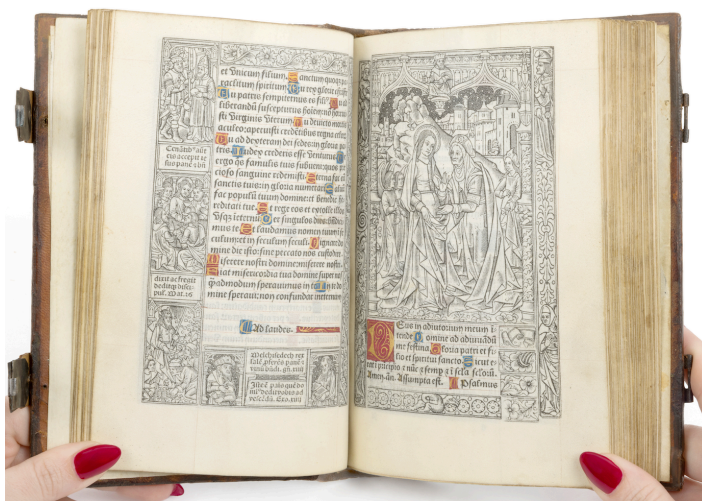 et Vnicum filium. Sanctum quoqz
raclitum spiritum. Tu rex glorie
Tu patris sempiternus es filiꝰ. Tu
liberandū suscepturus
sti Virginis Vterum. Tu deuicto mortis
aculeo: aperuisti credētibus regna
Tu ad dexteram dei sedes: in gloria pa
tris. Judex crederis esse Venturus.
ergo qs famulis tuis subueni: quos
cioso sanguine redemisti. Eterna fac
sanctis tuis: in gloria numerari.
fac populū tuum domine: et benedic he
reditati tue. Et rege eos et extolle illos
Vsqz
singulos
mus te. Et laudamus nomen tuum
culum: et in seculum seculi. Dignare
mine die isto: sine peccato nos custodire.
Miserere nostri domine: miserere nostri.
Fiat misericordia tua domine super
q̄admodum sperauimus in te. In te do
mine speraui: non confundar
Ad laudes.
accepit ie
sus panē
dixit ac fregit
deditqz disci
puł. Mat. 26
Melchisedech rex
panē
Iste ē panis quē do
minꝰ
Exo. xvi
Deus in adiutorium meum ī
tende. Domine ad adiuuandū
me festina. Gloria patri et fi
lio et spiritui sancto. Sicut e
rat ī pricipio z nūc z semp z ī scła scłorū.
Amen. añ. Assumpta est. Psalmus